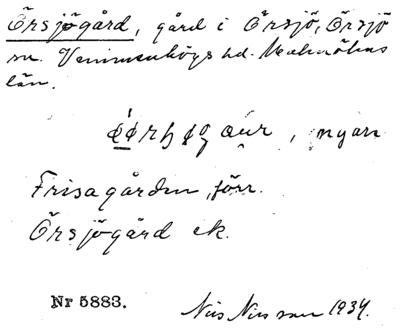 Örsjögård, gård i Örsjö, Örsjö
sn. Vemmenhögs hd. Malmöhus
län.
, nyare
Frisagården, förr.
Örsjögård ek.
Nr 5883.
Nils Nilsson 1934.